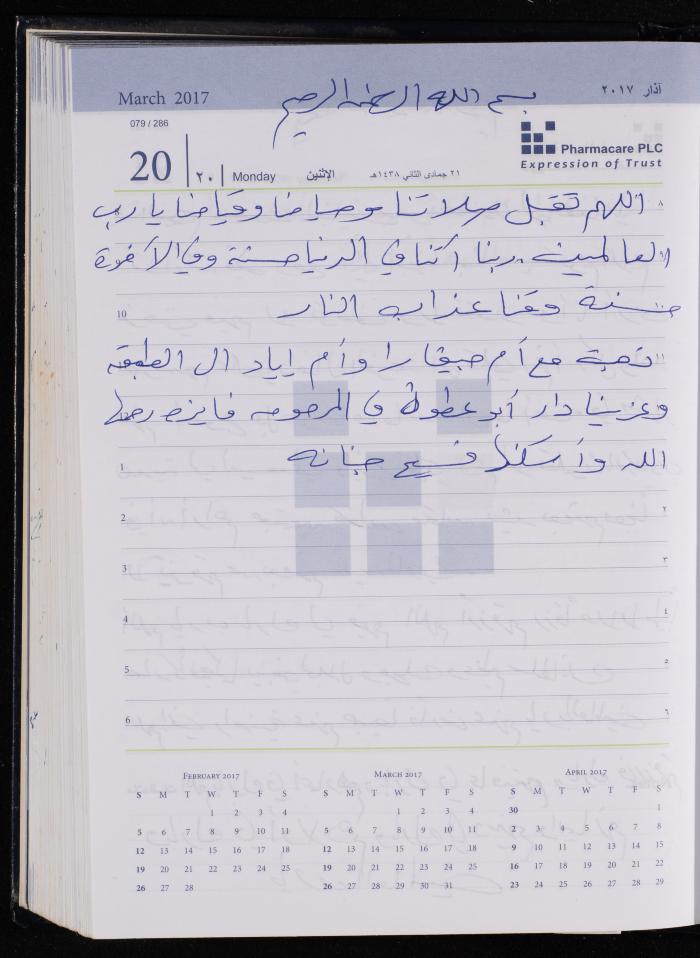 March 2017
بسم الله الرحمن الرحيم
آذار ٢٠١٧
079 / 286
20
٢٠
Monday
الإثنين
٢١ جمادى الثاني ١٤٣٨هـ
Pharmacare PLC
Expression of Trust
اللهم تقبل صلاتنا وصيامنا وقيامنا يا رب
العالمين ربنا آتنا في الدنيا حسنة وفي الآخرة
10 حسنة وقنا عذاب النار
ذهبت مع أم وأم إياد ال
وعزينا دار أبو عطوان في المرحومه فايزه رحمها
الله وأسكنها فسيح جنانه
1
2 ٢
3 ٣
4 ٤
5 ٥
6 ٦
February 2017
S M T W T F S
1 2 3 4
5 6 7 8 9 10 11
12 13 14 15 16 17 18
19 20 21 22 23 24 25
26 27 28
March 2017
S M T W T F S
1 2 3 4
5 6 7 8 9 10 11
12 13 14 15 16 17 18
19 20 21 22 23 24 25
26 27 28 29 30 31
April 2017
S M T W T F S
30 1
2 3 4 5 6 7 8
9 10 11 12 13 14 15
16 17 18 19 20 21 22
23 24 25 26 27 28 29